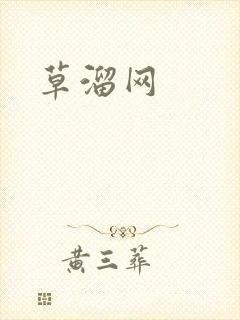 草溜网
黄三葬